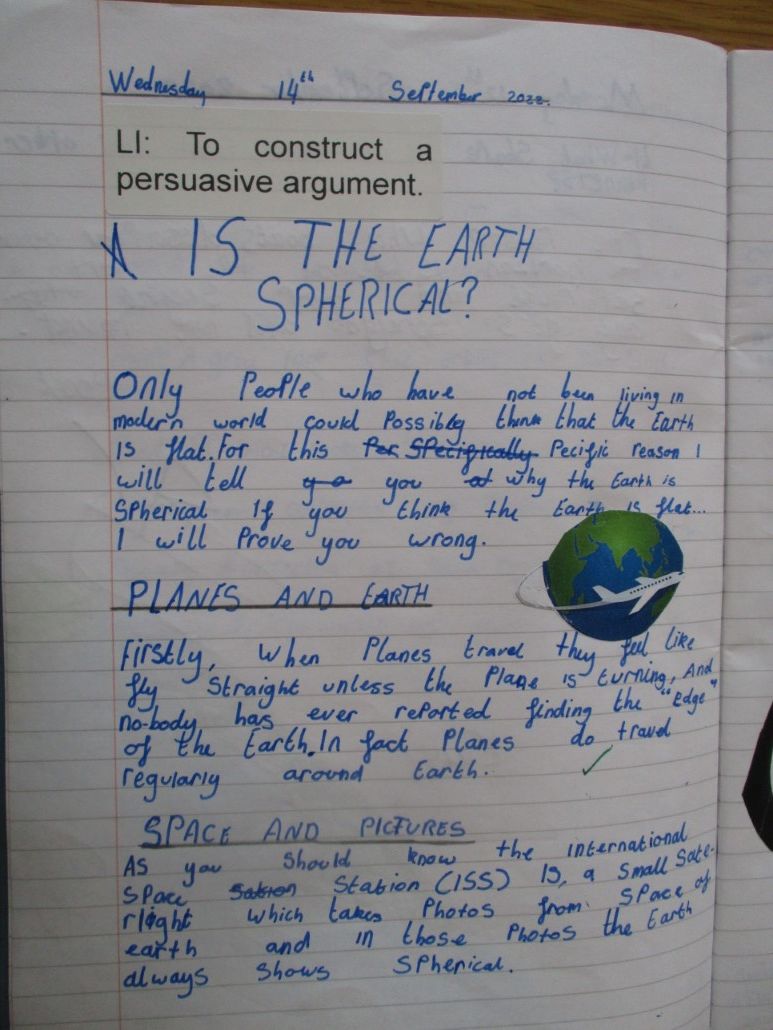 Wednesday 14th September 2022.
LI: To construct a
persuasive argument.
IS THE EARTH
SPHERICAL?
Only People who have not been living in
modern world could Possibly think that the Earth
is flat. For this Pecific reason I
will tell you why the Earth is
Spherical If you think the Earth is flat...
I will Prove you wrong.
PLANES AND EARTH
Firstly, When Planes travel they feel like
fly Straight unless the Plane is turning, And
no-body has ever reported finding the "Edge"
of the Earth. In fact Planes do travel
regularly around Earth.
SPACE AND PICTURES
As you should know the international
Space Station (ISS) Is, a Small Sate-
right which takes Photos from SPace of
earth and in those Photos the Earth
always shows Spherical.